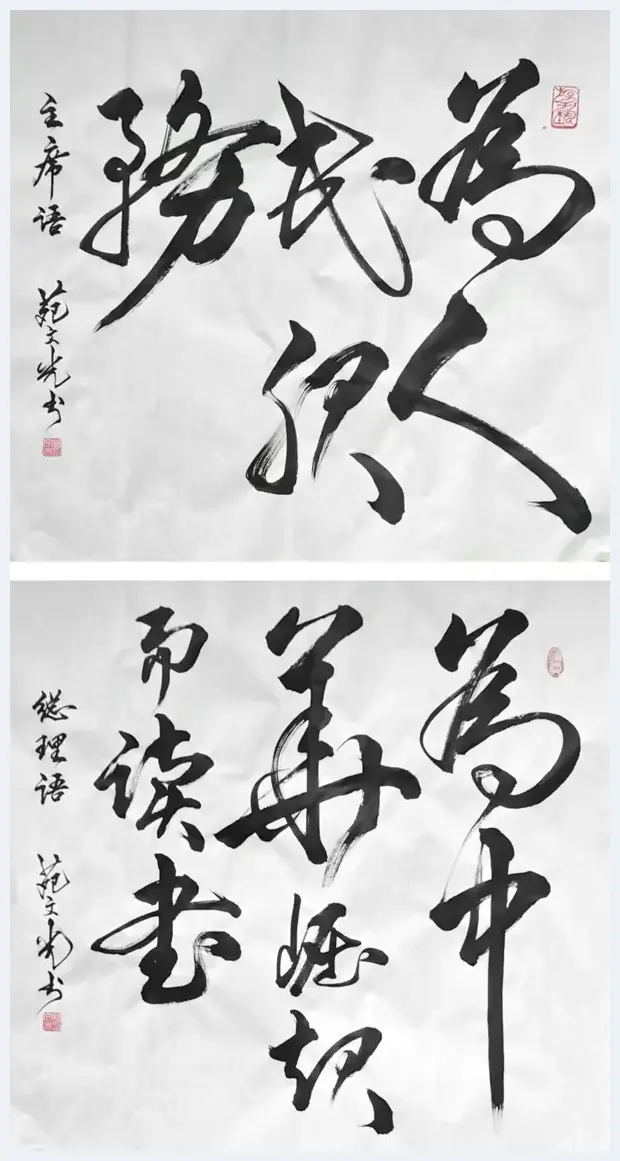 為人
民服
務
主席语 苑文光书
為中
華崛起
而读书
总理语 苑文光书